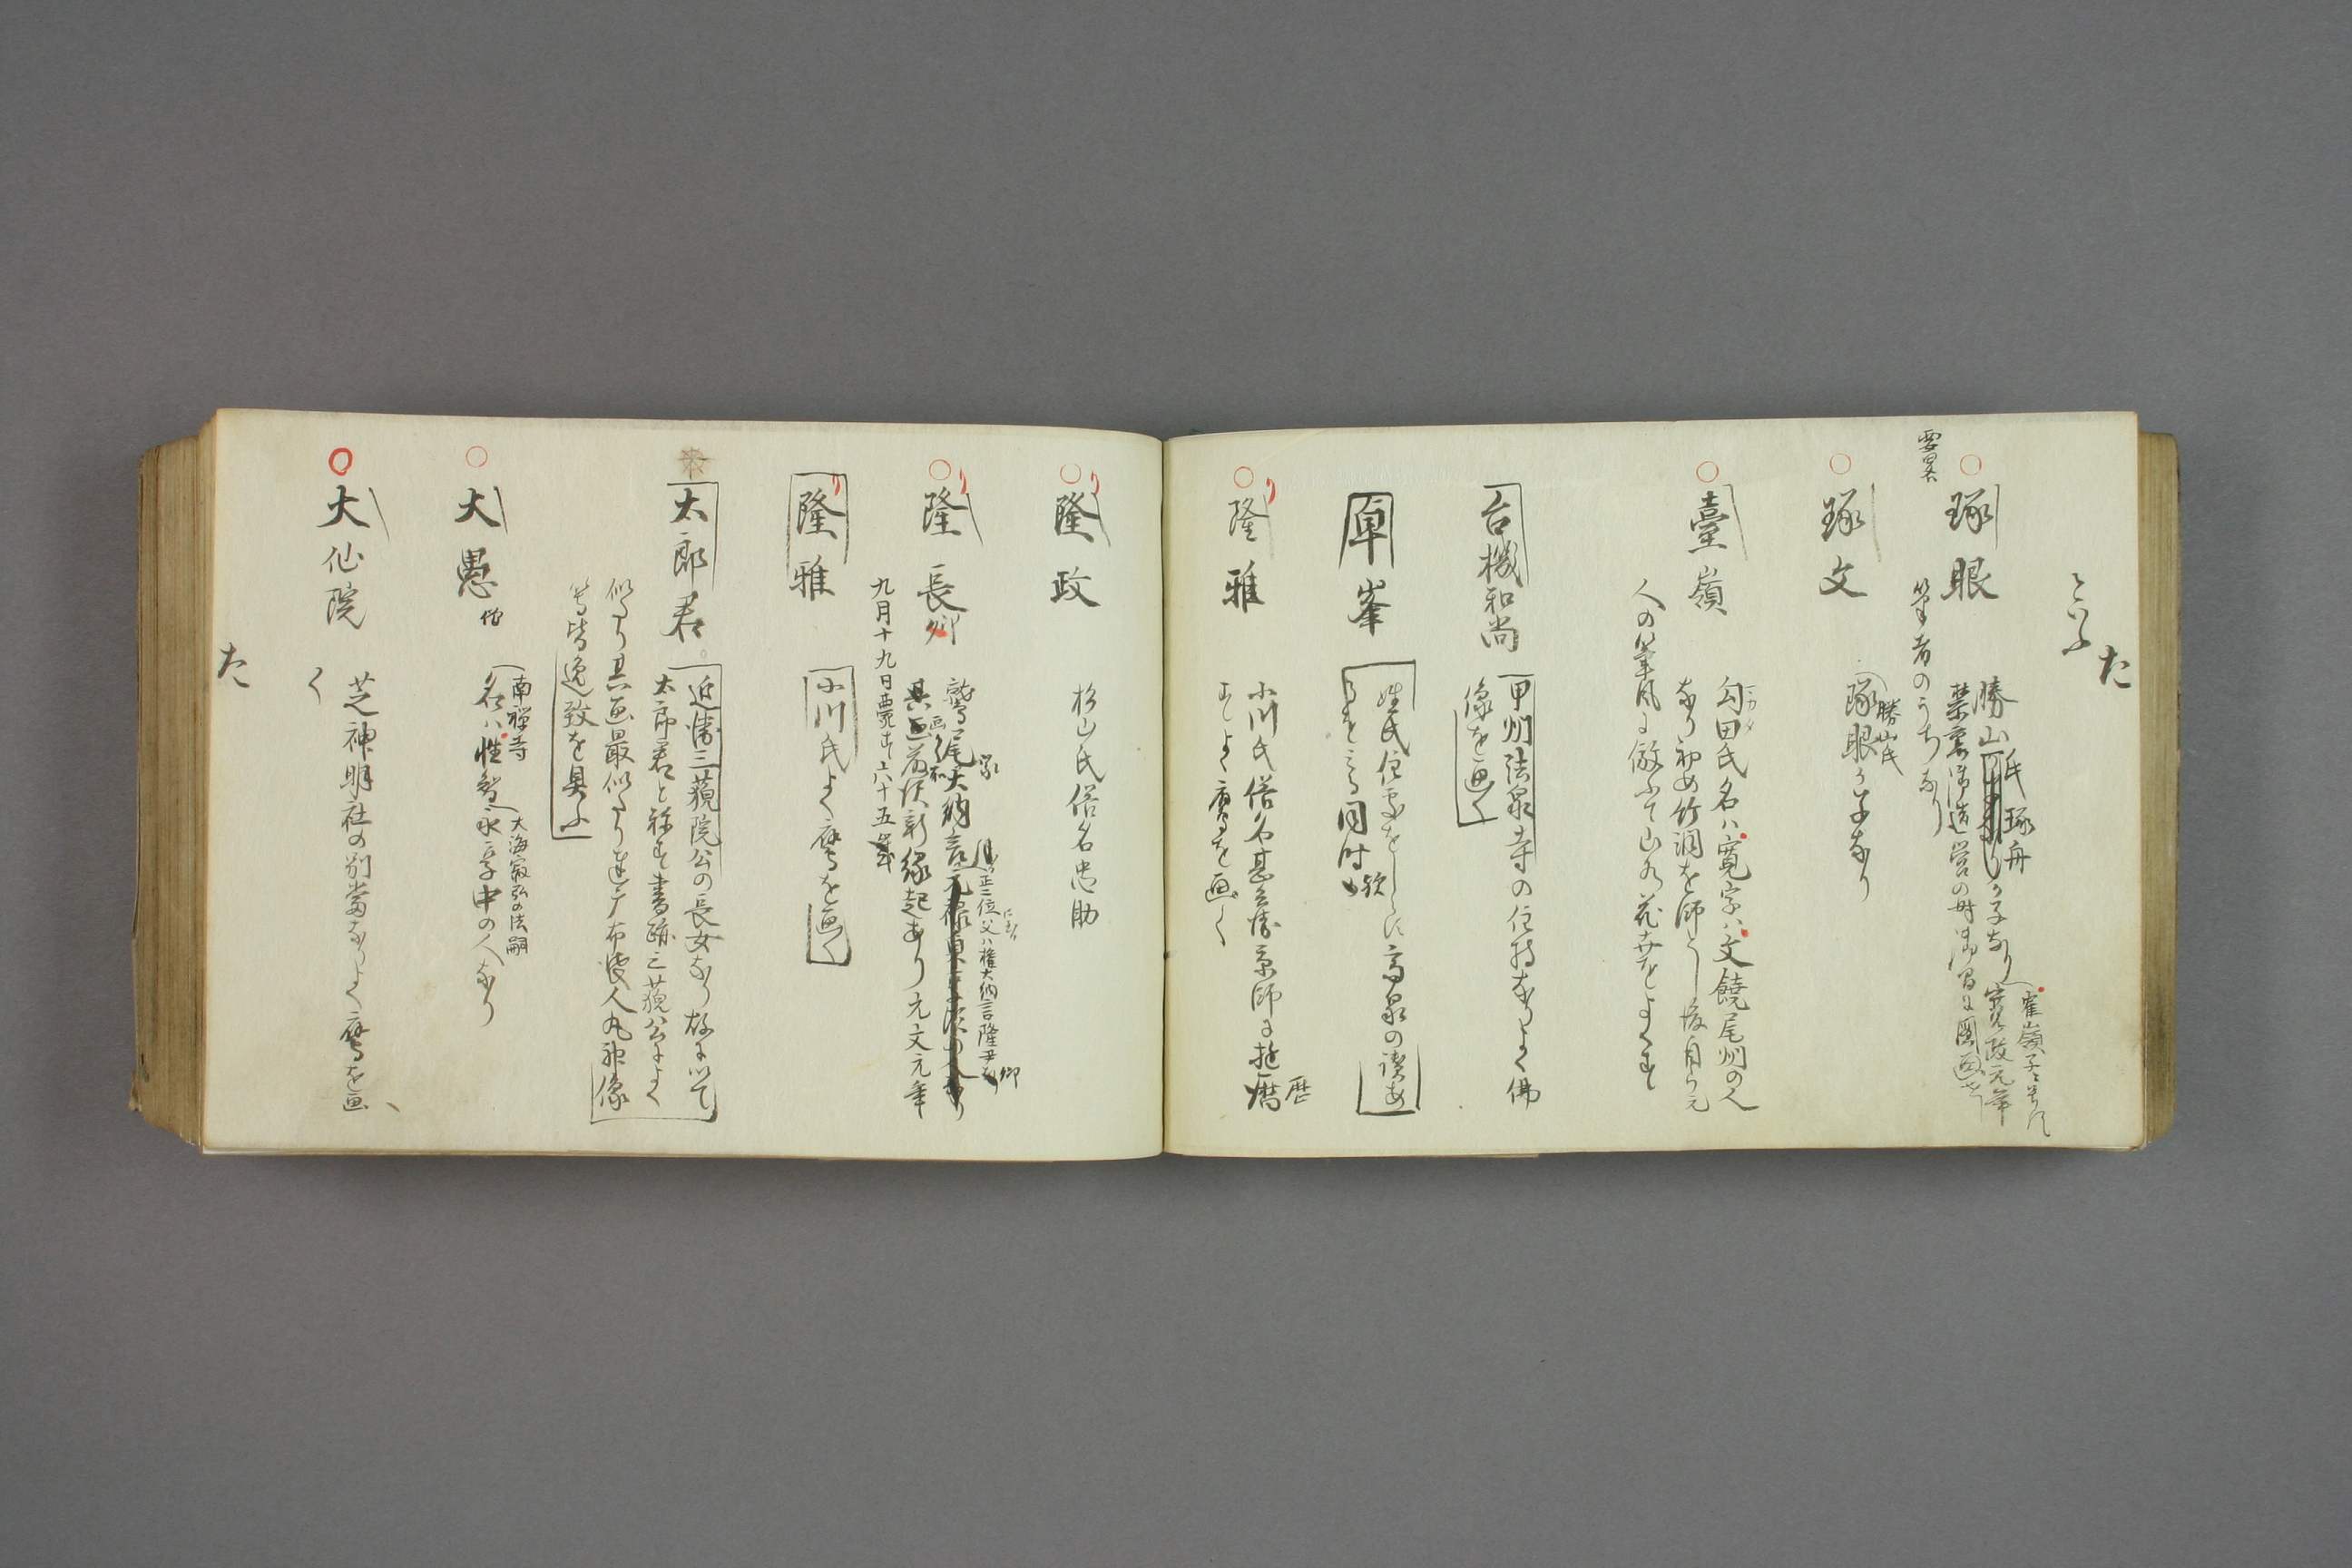 た
といふ
琢眼
勝山氏琢舟
か子なり
寉嶺子と号す
寛政元年
禁裏御造営の時
筆者のうちなり
琢文
勝山氏
琢眼か子なり
臺嶺
勾田氏名ハ寛字ハ文饒尾州の人
なり初め竹洞を師とし後自ら元
人の筆風に倣ふて山水花卉をよくす
台機和尚
甲州法泉寺の住持なりよく佛
像を画く
卓峯
姓氏住處をしらす高泉の讃あ
るをみる同時歟
隆雅
小川氏俗名甚兵衛京師に遊歴
すよく鷹を画く
隆政
杉山氏俗名忠助
隆長卿
鷲尾家大納言
正二位父ハ権大納言隆尹卿
新縁起あり元文元年
九月十九日薨す六十五歳
隆雅
小川氏よく鷹を画く
太郎君
近衛三藐院公の長女なり故に以て
太郎君と稱す書跡三藐公によく
似たり其画最似たり達广布袋人丸神像
等皆逸致を具ふ
大愚
南禅寺
大海寂弘の法嗣
名ハ性智永享中の人なり
大仙院
芝神明社の別當なりよく鷹を画
く
た